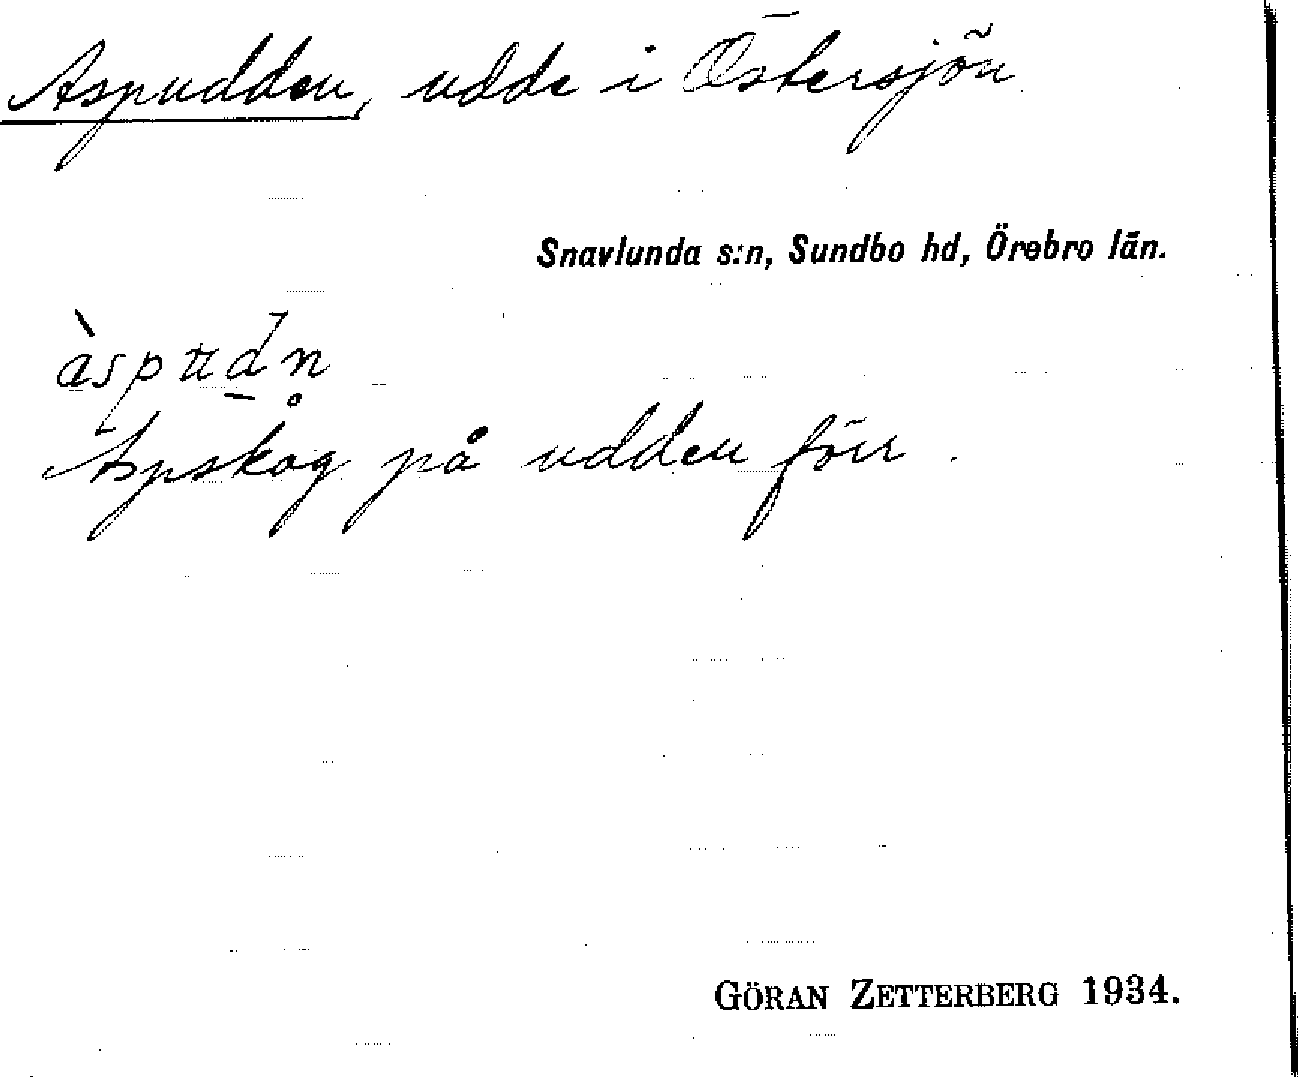 Aspudden, udde i Östersjön
Snavlunda s:n, Sundbo hd, Örebro län.
àspudn
Aspskog på udden förr.
GÖRAN ZETTERBERG 1934.